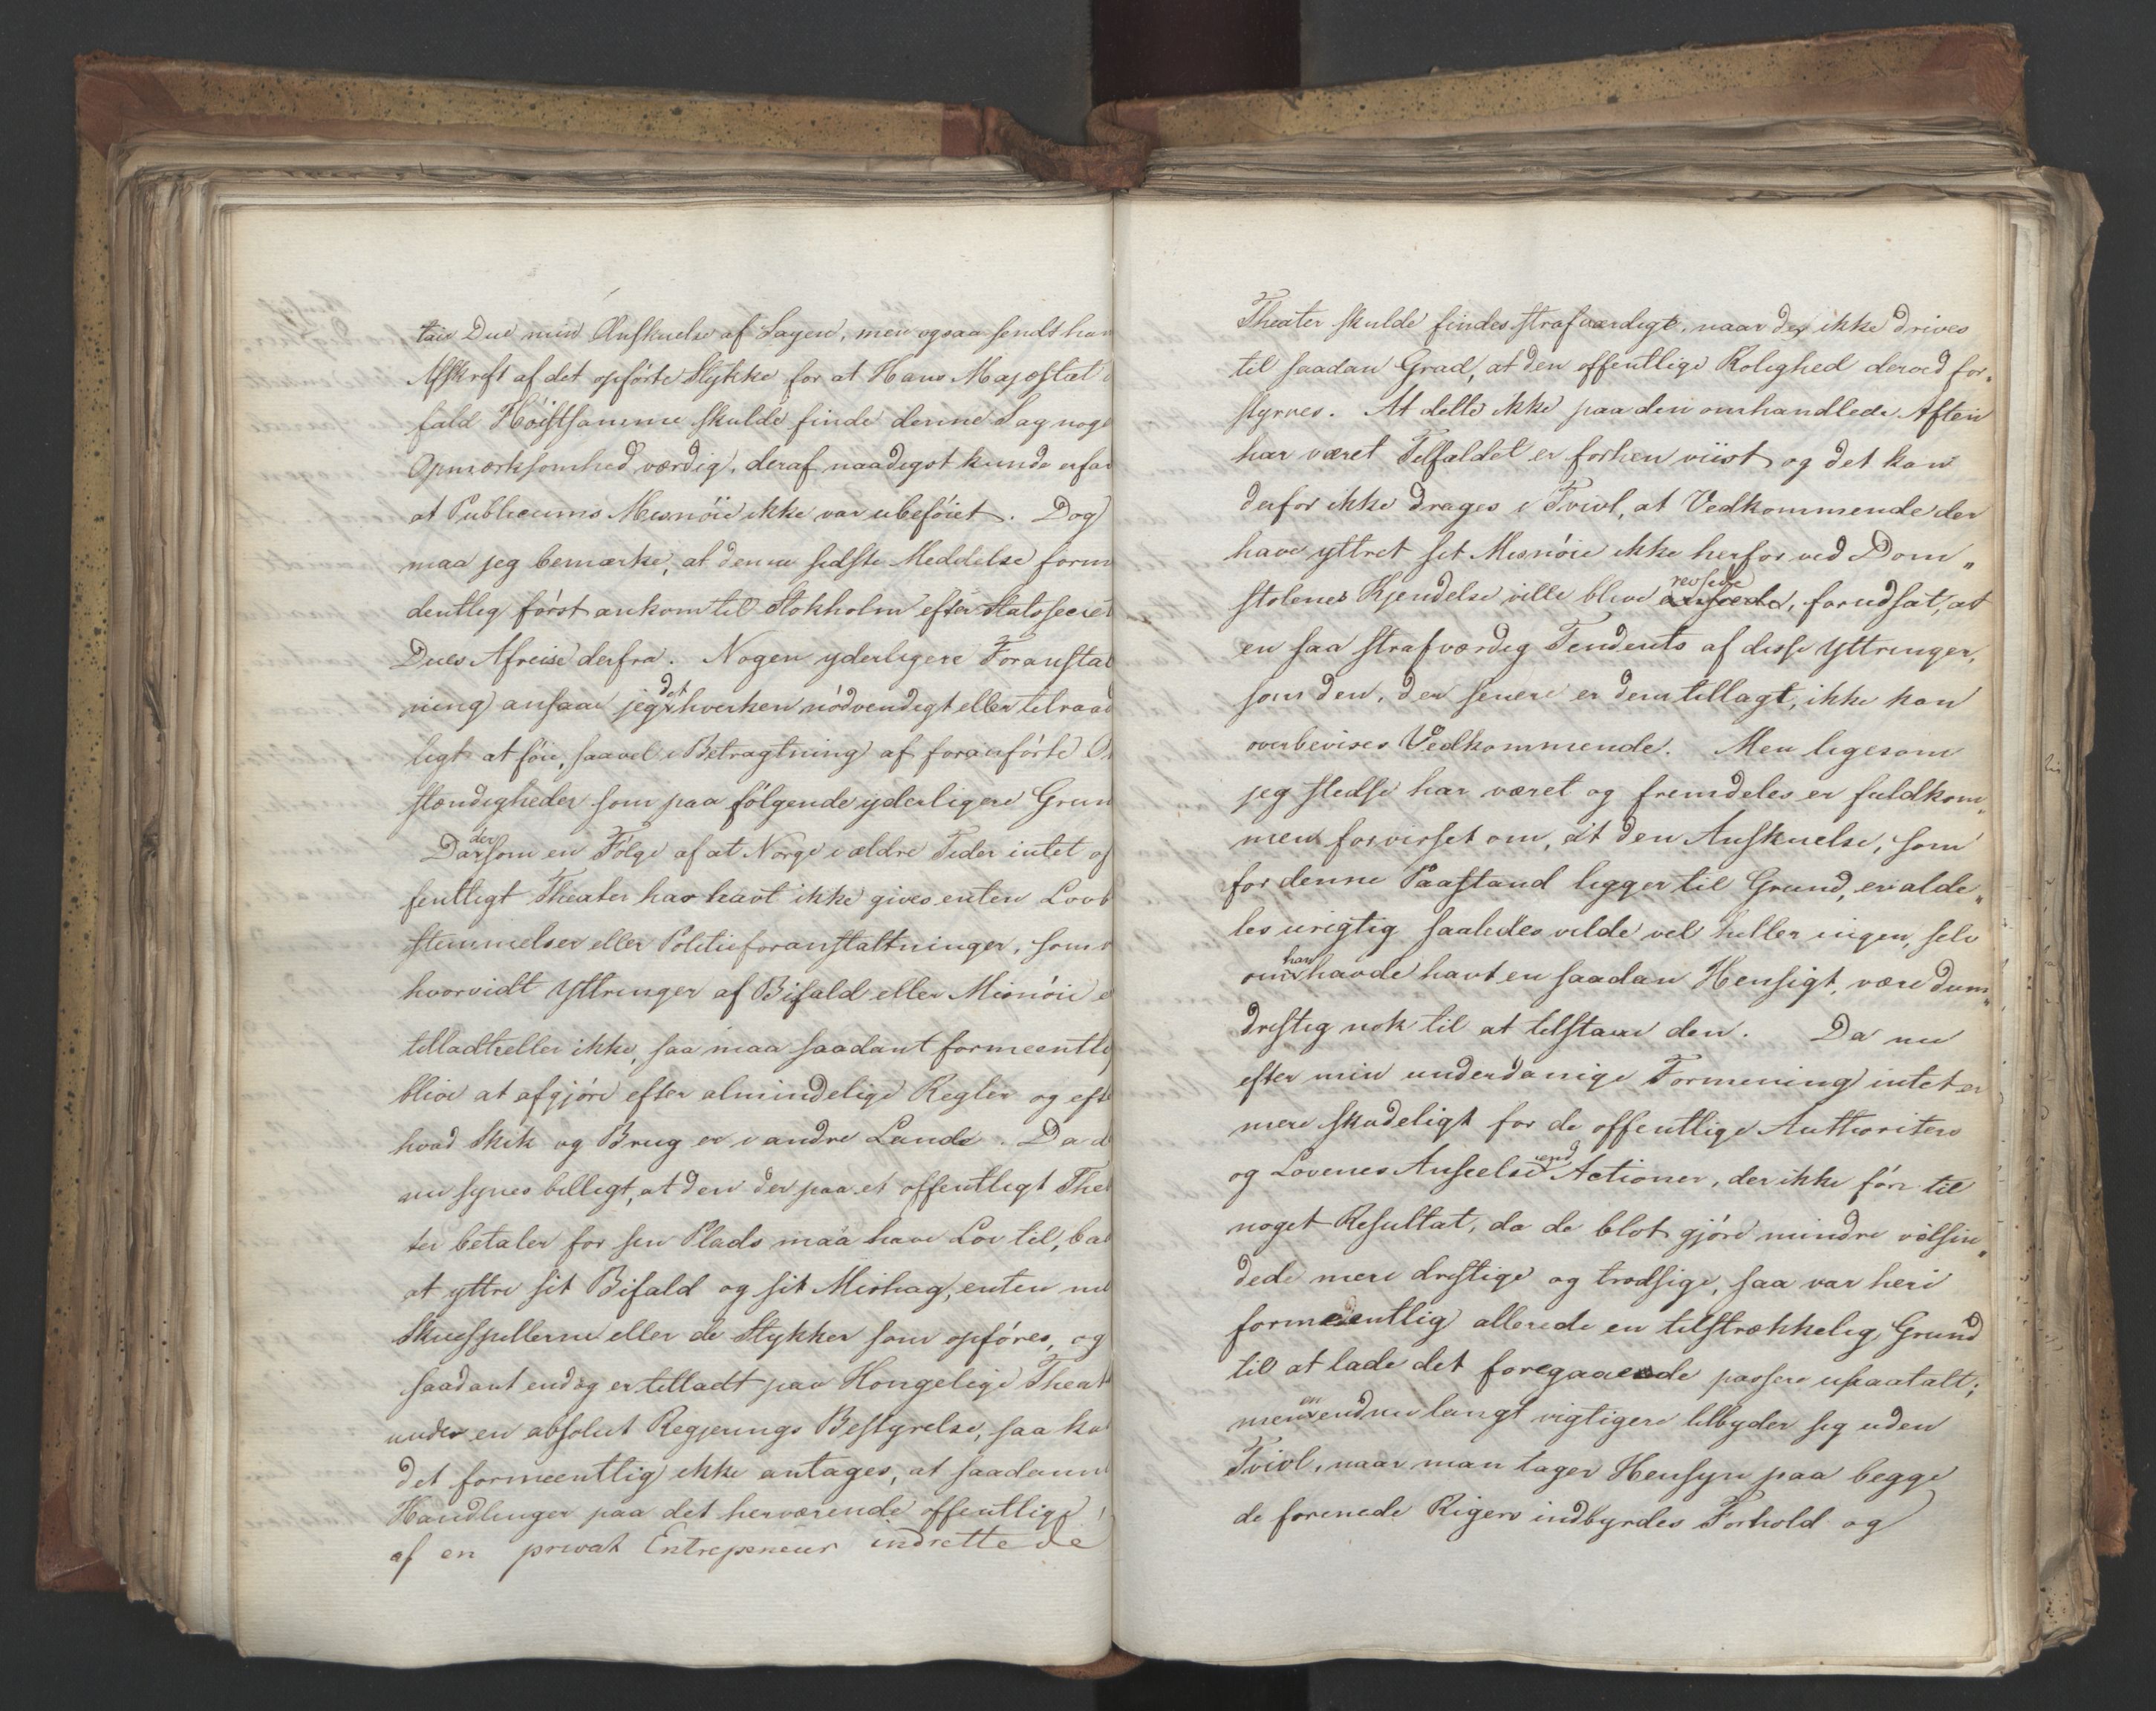 tair Due min Anskuelse af Sagen, men ogsaa sendt ham
Afskrift af det opførte Stykke for at Hans Majestæt i
fald Høistsamme skulde finde denne Sag noge
Opmærksomhed værdig, deraf naadigst kunde erfar
at Publicums Misnöie ikke var ubeföiet. Dog
maa jeg bemærke, at denne sidste Meddelse form
dentlig först ankom til Stokholm efter Statssecret
Dues Afreise derfra. Nogen yderligere Foranstal
ning ansaae jeg det hverken nödvendigt eller tilraad
ligt at föie, saavel i Betragtning af foranførte O
stændigheder som paa fölgende yderligere Grun
Da der som en Fölge af at Norge i ældre Tider intet of
fentligt Theater har havt ikke gives enten Lovb
stemmelser eller Politieforanstaltninger, som
hvorvidt Yttringer af Bifald eller Misnöie e
tilladt eller ikke, saa maa saadant formeentlig
blive at afgjöre efter almindelige Regler og efte
hvad Skik og Brug er i andre Lande. Da d
nu synes billigt, at den der paa et offentligt Thea
ter betaler for sin Plads maa have Lov til, baa
at yttre sit Bifald og sit Mishag, enten med
Skuespillerne eller de Stykker som opföres, og
saadant endog er tilladt paa Kongelige Theat
under en absolut Regjerings Bestyrelse, saa ka
det formeentlig ikke antages, at saadanne
Handlinger paa det herværende offentlige
af en privat Entrepeneur indrettede
Theater skulde findes strafværdige, naar de ikke drives
til saadan Grad, at den offentlige Rolighed derved for„
styrres. At dette ikke paa den omhandlede Aften
har været Tilfældet er forhen viist og det kan
derfor ikke drages i Tvivl, at Vedkommende der
have yttret sit Misnöie ikke herfor ved Dom„
stolenes Kjendelse ville blive revsede, forudsat, at
en saa strafværdig Tendents af disse Yttringer,
som den, der senere er dem tillagt, ikke kan
overbevises Vedkommende. Men ligesom
jeg stedse har været og fremdeles er fuldkom„
men forvisset om, at den Anskuelse, som
for denne Paastand ligger til Grund, er alde„
les urigtig saaledes vilde vel heller ingen, selv
om han havde havt en saadan Hensigt, være dum„
dristig nok til at tilstaae den. Da nu
efter min underdanige Formening intet er
mere skadeligt for de offentlige Authoriteters
og Lovenes Anseelse end Actioner, der ikke före til
noget Resultat, da de blot gjöre mindre velsin„
dede mere dristige og trodsige, saa var heri
formeentlig allerede en tilstrækkelig Grund
til at lade det foregaaende passere upaatalt;
men en endnu langt vigtigere tilbyder sig uden
Tvivl, naar man tager Hensyn paa begge
de forenede Rigers indbyrdes Forhold og